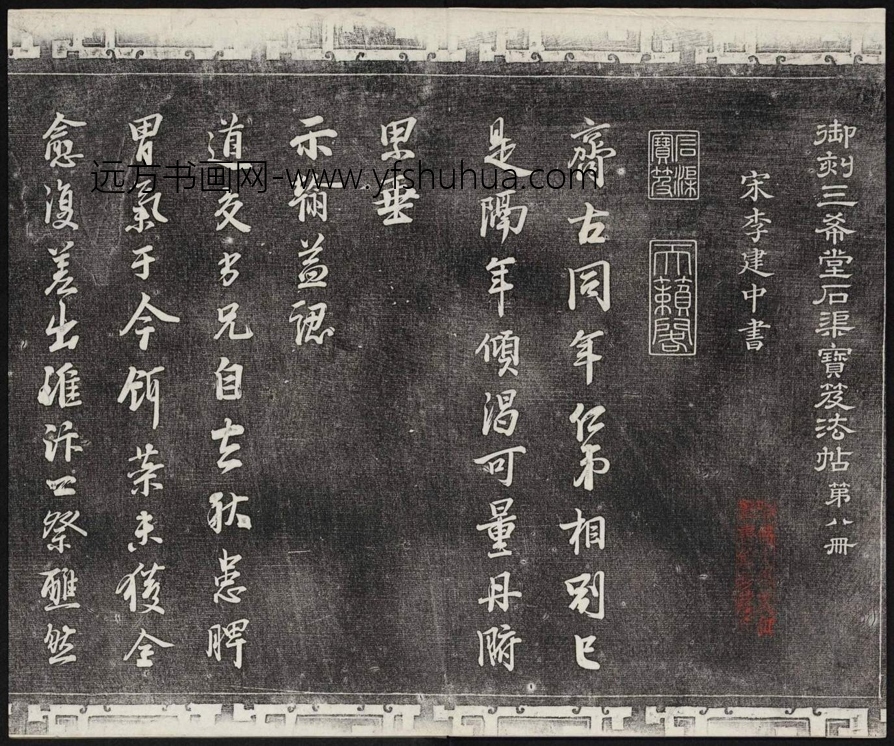 御刻三希堂石渠寶笈法帖第八冊
宋李建中書
石渠寶笈
天籟閣
齋古同年仁弟相別已
是隔年傾渴可量丹腑
累垂
示翰益認
道友于兄自去秋患脾
胃氣于今餌藥未獲全
愈復差出雍汴口祭醮然
远方书画网-www.yfshuhua.com